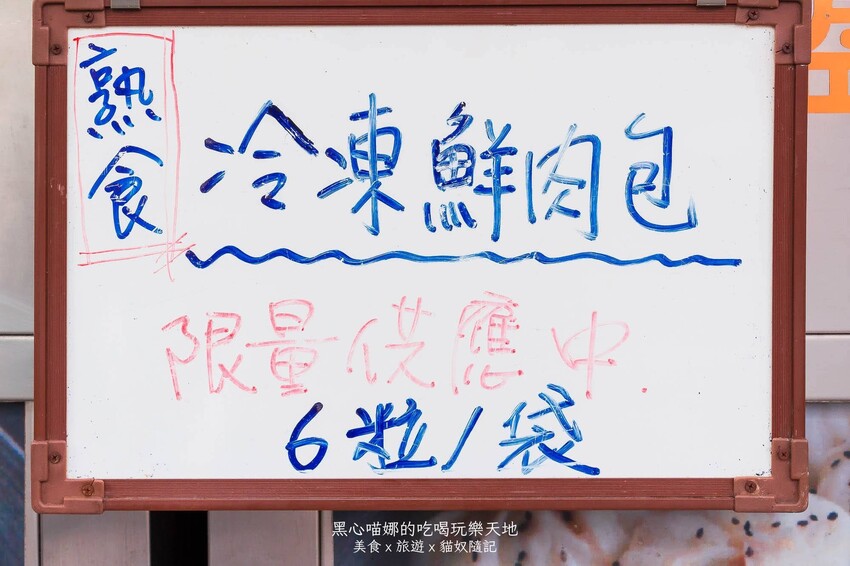 熟食
冷凍鮮肉包
限量供應中.
6粒/袋
黑心喵娜的吃喝玩樂天地
美食 x 旅遊 x 貓奴隨記